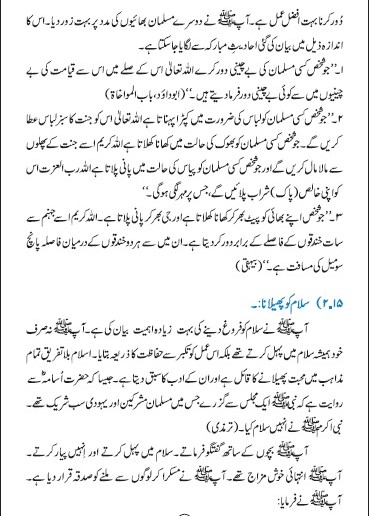 دُور کرنا بہت افضل عمل ہے۔ آپ ﷺ نے دوسرے مسلمان بھائیوں کی مدد پر بہت زور دیا۔ اس کا
اندازہ ذیل میں بیان کی گئی احادیثِ مبارکہ سے لگایا جاسکتا ہے۔
۱۔ ”جو شخص کسی مسلمان کی بے چینی دور کرے اللہ تعالیٰ اس کے صلے میں اس سے قیامت کی بے
چینیوں میں سے کوئی بے چینی دور فرما دیتے ہیں۔“ (ابوداؤد، باب المواخاة)
۲۔ ”جو شخص کسی مسلمان کو لباس کی ضرورت میں کپڑا پہناتا ہے اللہ تعالیٰ اس کو جنت کا سبز لباس عطا
کریں گے۔ جو شخص کسی مسلمان کو بھوک کی حالت میں کھانا کھلاتا ہے اللہ کریم اسے جنت کے پھلوں
سے مالا مال کریں گے اور جو شخص کسی مسلمان کو پیاس کی حالت میں پانی پلاتا ہے اللہ رب العزت اس
کو اپنی خالص (پاک) شراب پلائیں گے، جس پر مہر لگی ہوگی۔“
۳۔ ”جو شخص اپنے بھائی کو پیٹ بھر کر کھانا کھلاتا ہے اور جی بھر کر پانی پلاتا ہے۔ اللہ کریم اسے جہنم سے
سات خندقوں کے فاصلے کے برابر دور کر دیتا ہے۔ ان میں سے ہر دو خندقوں کے درمیان فاصلہ پانچ
سو میل کی مسافت ہے۔“ (بیہقی)
۲.۱۵) سلام کو پھیلانا:۔
آپ ﷺ نے سلام کو فروغ دینے کی بہت زیادہ اہمیت بیان کی ہے۔ آپ ﷺ نہ صرف
خود ہمیشہ سلام میں پہل کرتے تھے بلکہ اس عمل کو تکبر سے حفاظت کا ذریعہ بتایا۔ اسلام بلا تفریق تمام
مذاہب میں محبت پھیلانے کا قائل ہے اور ان کے ادب کا سبق دیتا ہے۔ جیسا کہ حضرت اُسامہؓ سے
روایت ہے کہ نبی ﷺ ایک مجلس سے گزرے جس میں مسلمان مشرکین اور یہودی سب شریک تھے۔
نبی اکرم ﷺ نے انہیں سلام کیا۔ (ترمذی)
آپ ﷺ بچوں کے ساتھ گفتگو فرماتے۔ سلام میں پہل کرتے اور اِنہیں پیار کرتے۔
آپ ﷺ انتہائی خوش مزاج تھے۔ آپ ﷺ نے مسکرا کر لوگوں سے ملنے کو صدقہ قرار دیا ہے۔
آپ ﷺ نے فرمایا: